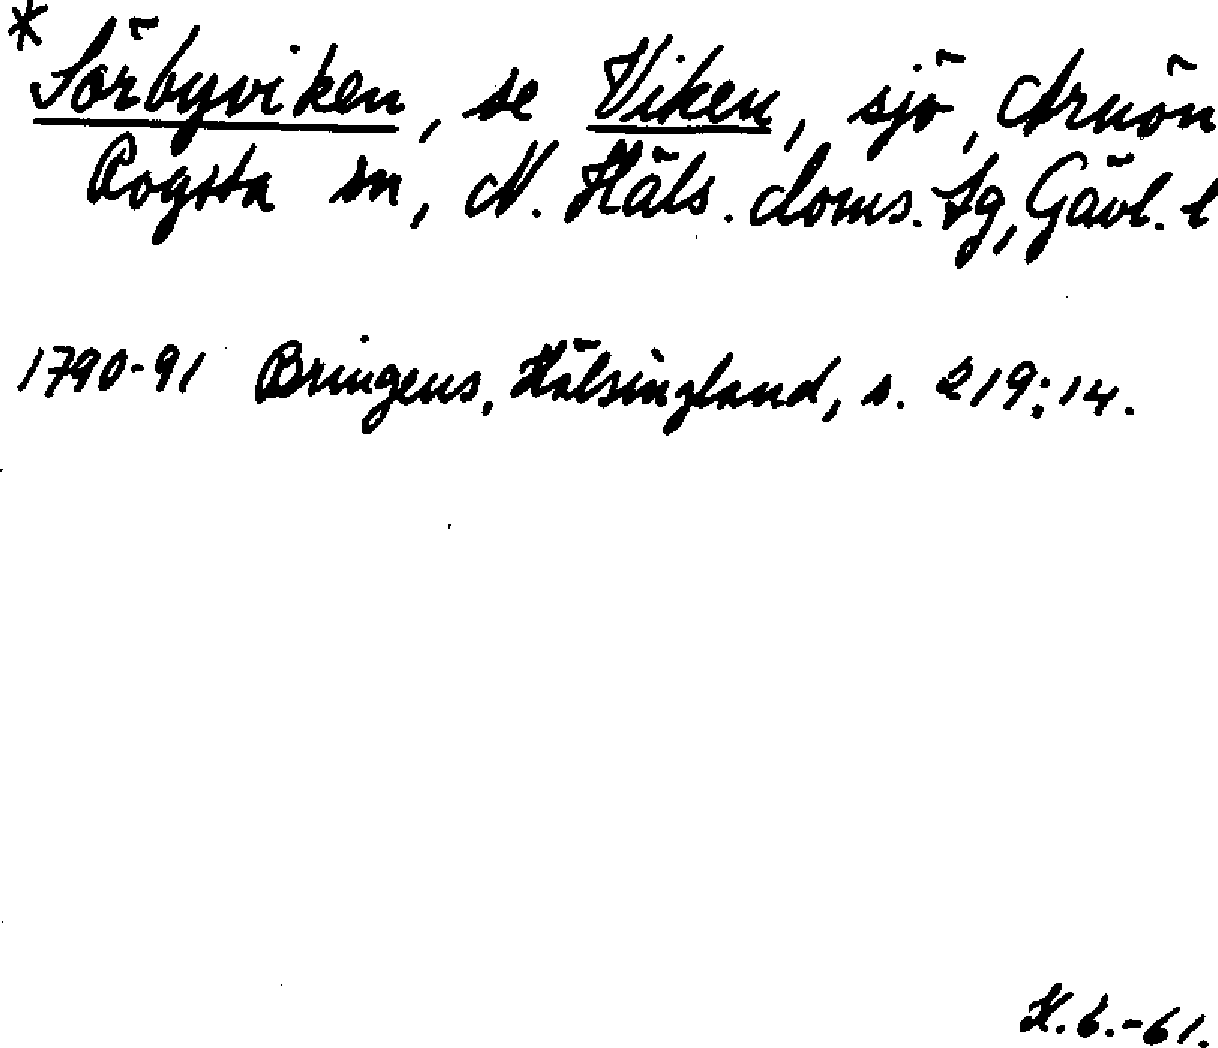 * Sörbyviken, se Viken, sjö, Arnön
Rogsta sn, N. Häls. doms. sg, Gävl. l
1790-91 Bringéus, Hälsingland, s. 219:14.
H.b.-61.